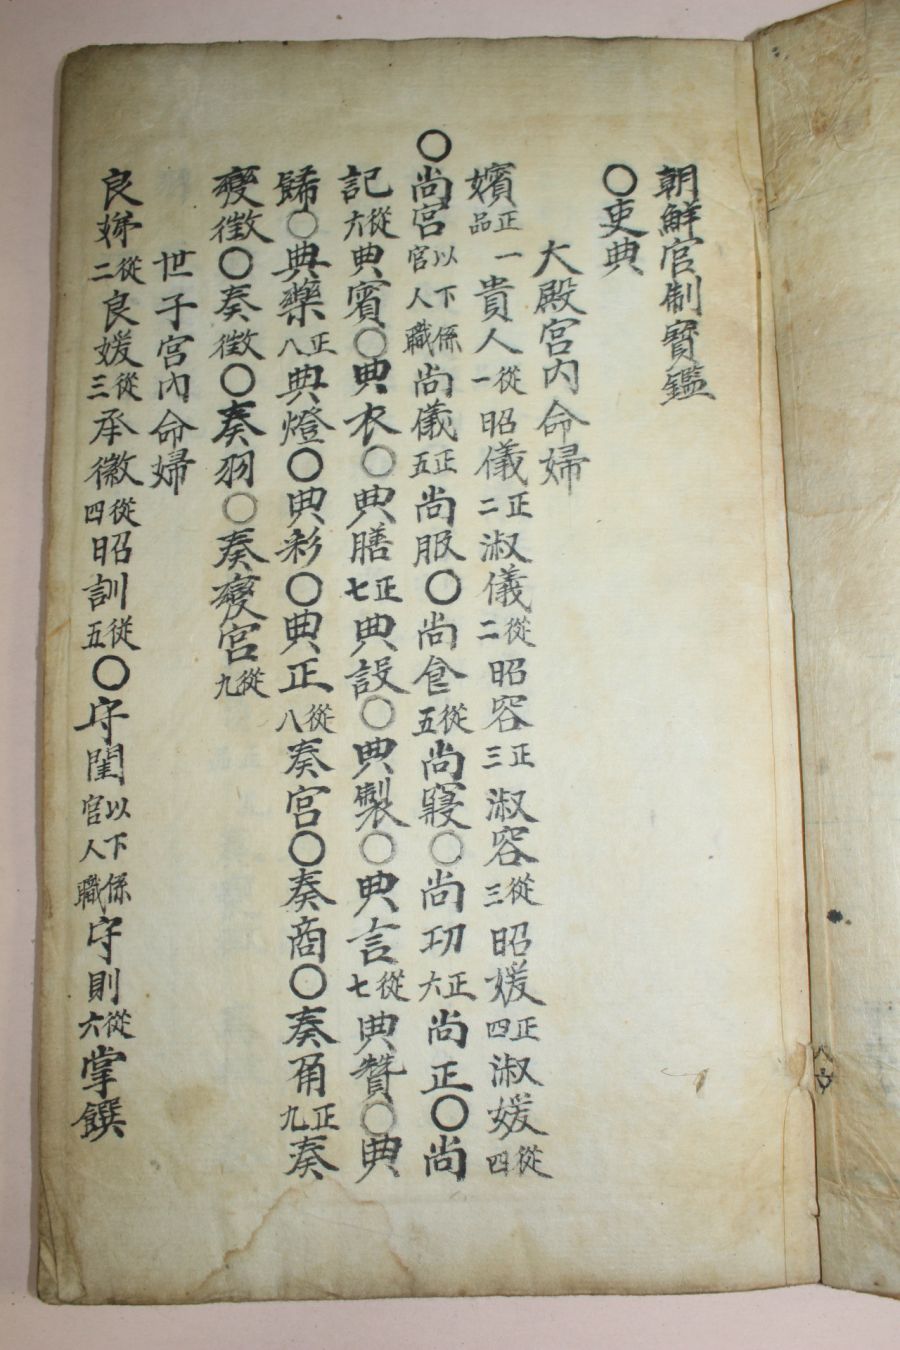 朝鮮官制寶鑑
○吏典
大殿宮內命婦
嬪正一品貴人從一昭儀正二淑儀從二昭容正三淑容從三昭媛正四淑媛從四
○尚宮以下係宮人職尚儀正五尚服○尚食從五尚寢○尚功正六尚正○尚
記從六典賓○典衣○典膳正七典設○典製○典言從七典贊○典
餙○典藥正八典燈○典彩○典正從八奏宮○奏商○奏角正九奏
變徵○奏徵○奏羽○奏變宮從九
世子宮內命婦
良娣從二良媛從三承徽從四昭訓從五○守閨以下係宮人職守則從六掌饌